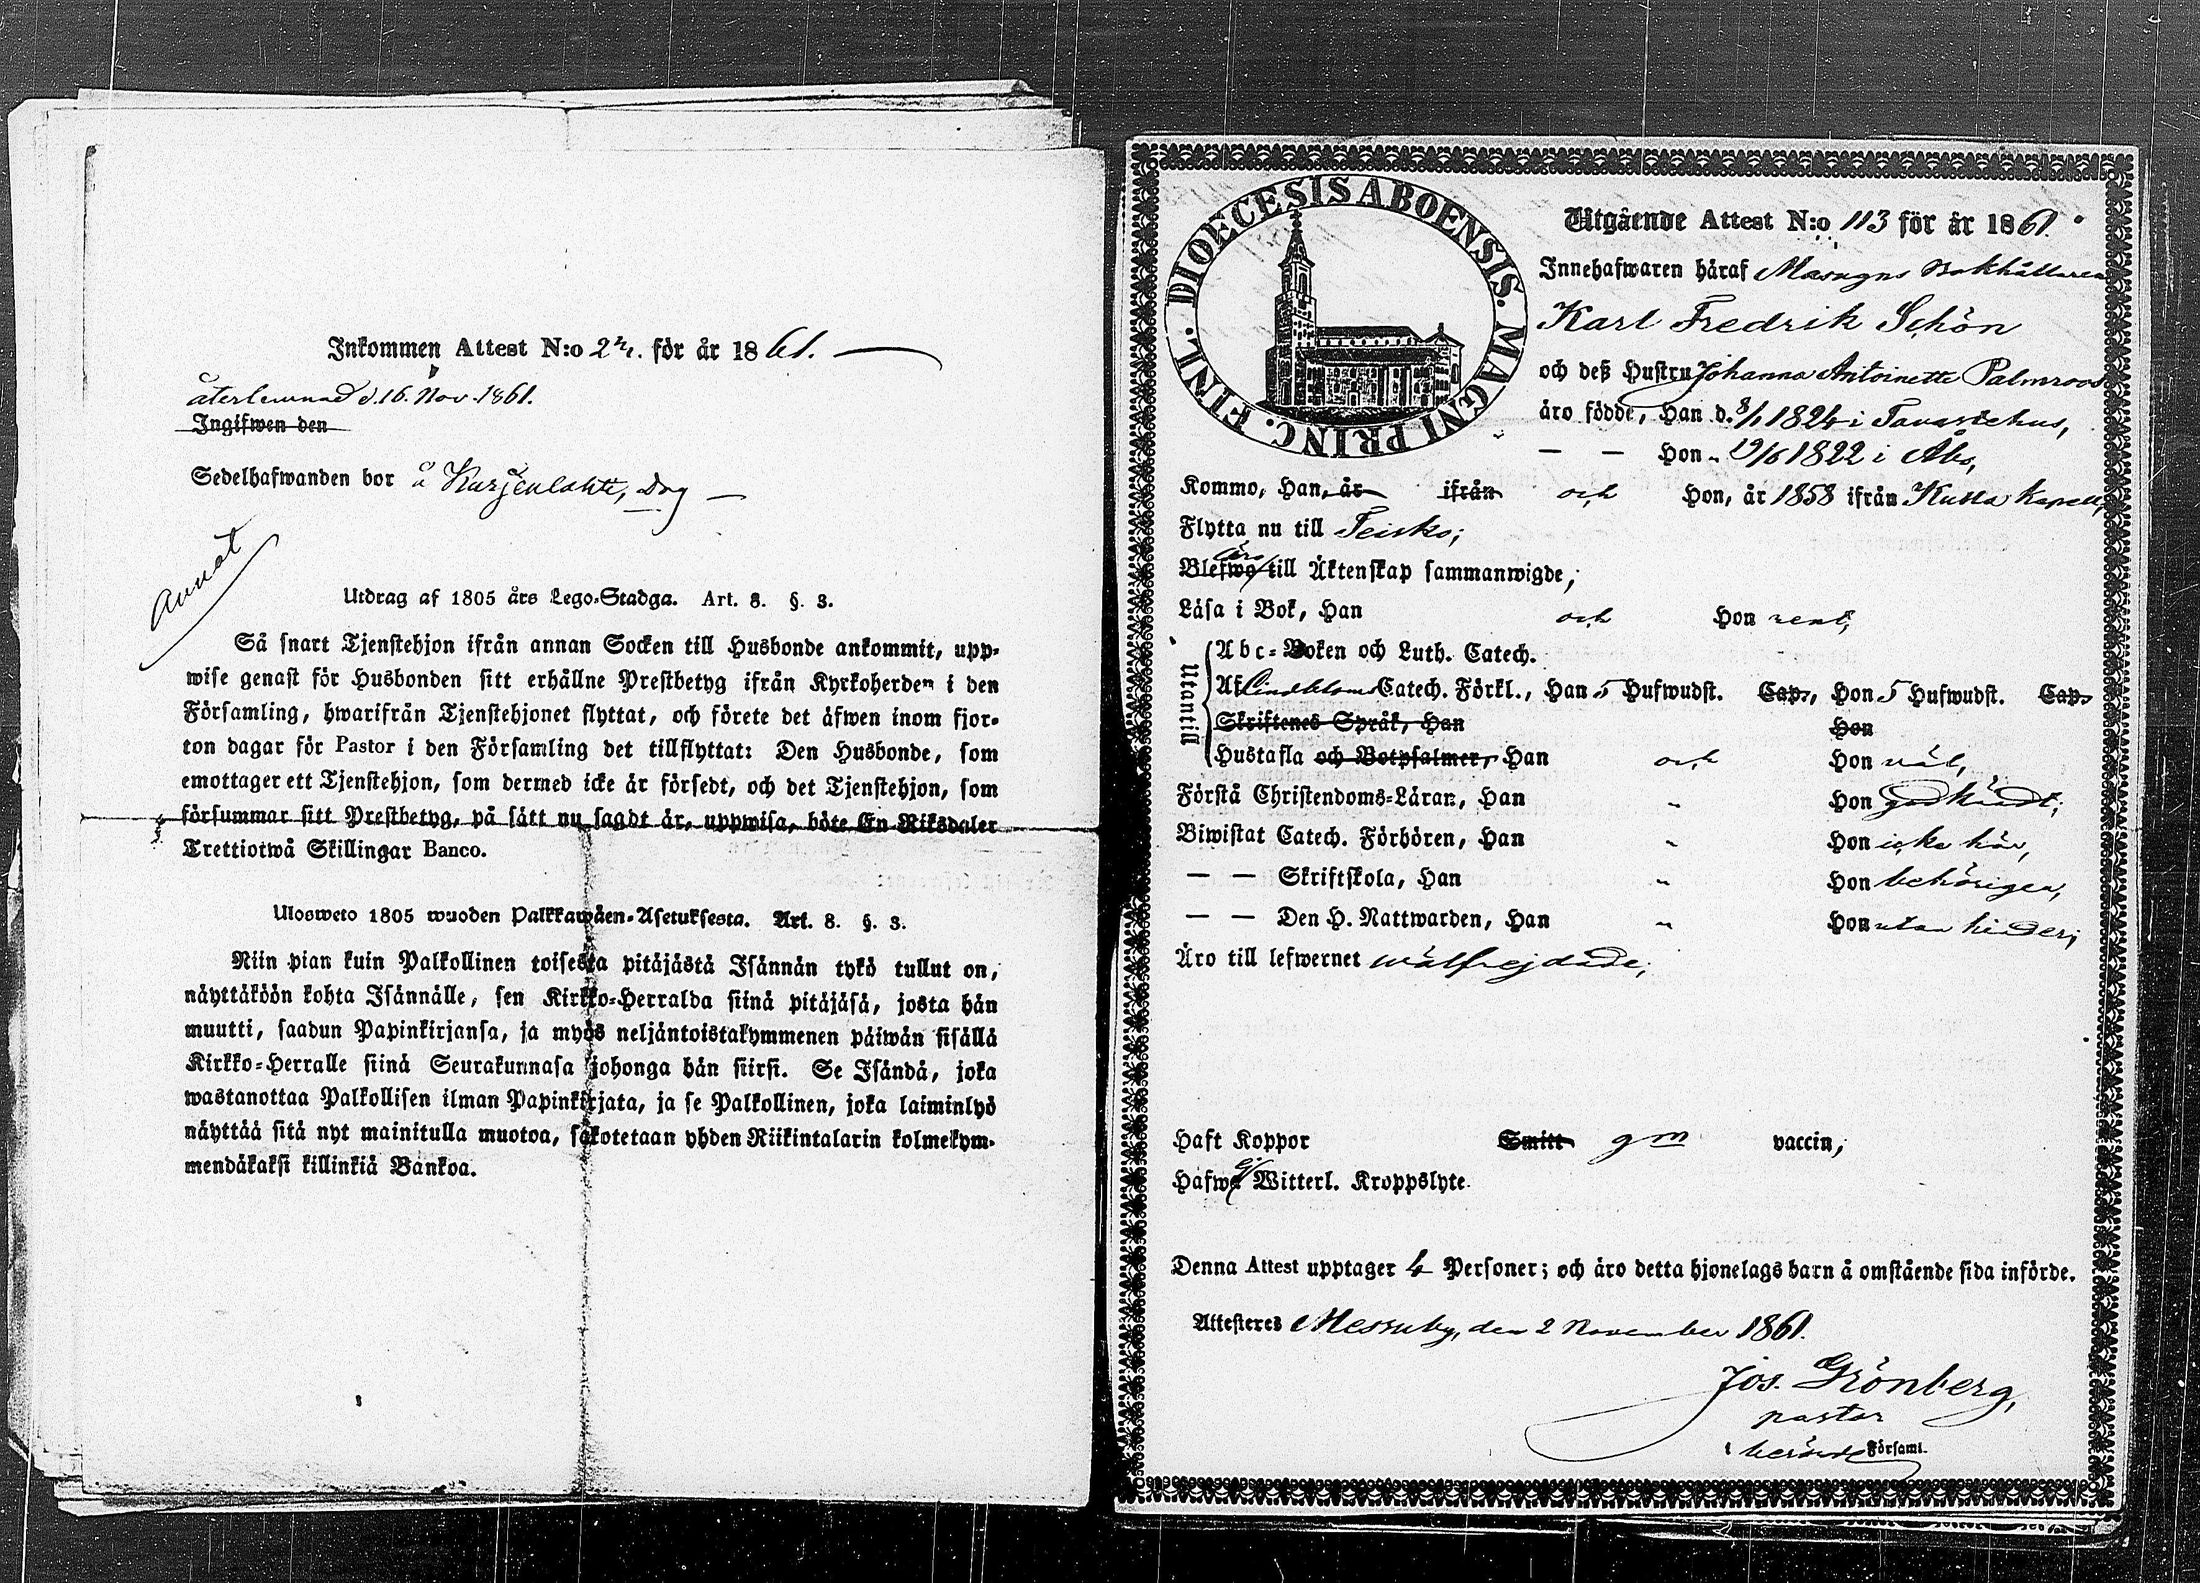 Inkommen Attest N:o för år 1861.
återlemnad d. 16. Nov. 1861.
Ingifwen den
Sedelhafwanden bor å
Annat
Utdrag af 1805 års Lego-Stadga. Art. 8. §. 3.
Så snart Tjenstehjon ifrån annan Socken till Husbonde ankommit, upp-
wise genast för Husbonden sitt erhållne Prestbetyg ifrån Kyrkoherden i den
Församling, hwarifrån Tjenstehjonet flyttat, och förete det äfwen inom fjor-
ton dagar för Pastor i den Församling det tillflyttat: Den Husbonde, som
emottager ett Tjenstehjon, som dermed icke är försedt, och det Tjenstehjon, som
försummar sitt Prestbetyg, på sätt nu sagdt är, uppwisa, böte En Riksdaler
Trettiotwå Skillingar Banco.
Ulosweto 1805 wuoden Palkkawäen-Asetuksesta. Art. 8. §. 3.
Niin pian kuin Palkollinen toisesta pitäjästä Isännän tykö tullut on,
näyttäköön kohta Isännälle, sen Kirkko-Herralda siinä pitäjäsä, josta hän
muutti, saadun Papinkirjansa, ja myös neljäntoistakymmenen päiwän sisällä
Kirkko-Herralle siinä Seurakunnasa johonga hän siirsi. Se Isändä, joka
wastanottaa Palkollisen ilman Papinkirjata, ja se Palkollinen, joka laiminlyö
näyttää sitä nyt mainitulla muotoa, sakotetaan yhden Riikintalarin kolmekym-
mendäkaksi killinkiä Bankoa.
FINL. DIOECESIS ABOENSIS. MAGNI PRINC.
Utgående Attest N:o 113 för år 1861.
Innehafwaren häraf Masugns Bokhållaren
Karl Fredrik Schön
och deß Hustru Johanna Antoinette Palmroos
äro födde, Han d. 8/1 1824 i Tavastehus,
— — Hon " 19/6 1822 i Åbo,
Kommo, Han, år ifrån och Hon, år 1858 ifrån Kapell,
Flytta nu till Teisko;
Blefwo äro till Äktenskap sammanwigde;
Läsa i Bok, Han och Hon rent,
Utantill
Abc-Boken och Luth. Catech.
Af Lindbloms Catech. Förkl., Han 5 Hufwudst. Cap., Hon 5 Hufwudst. Cap.
Skriftenes Språk, Han Hon
Hustafla och Botpsalmer, Han och Hon väl,
Förstå Christendoms-Läran, Han " Hon godkändt;
Biwistat Catech. Förhören, Han " Hon icke här,
— — Skriftskola, Han " Hon behörigen,
— — Den H. Nattwarden, Han " Hon utan hinder;
Äro till lefwernet wälfrejdade;
Haft Koppor Smitt gm vaccin,
Hafwa ej Witterl. Kroppslyte.
Denna Attest upptager 4 Personer; och äro detta hjonelags barn å omstående sida införde.
Attesteres Messuby, den 2 November 1861.
Jos. Grönberg,
pastor
i berörde Församl.